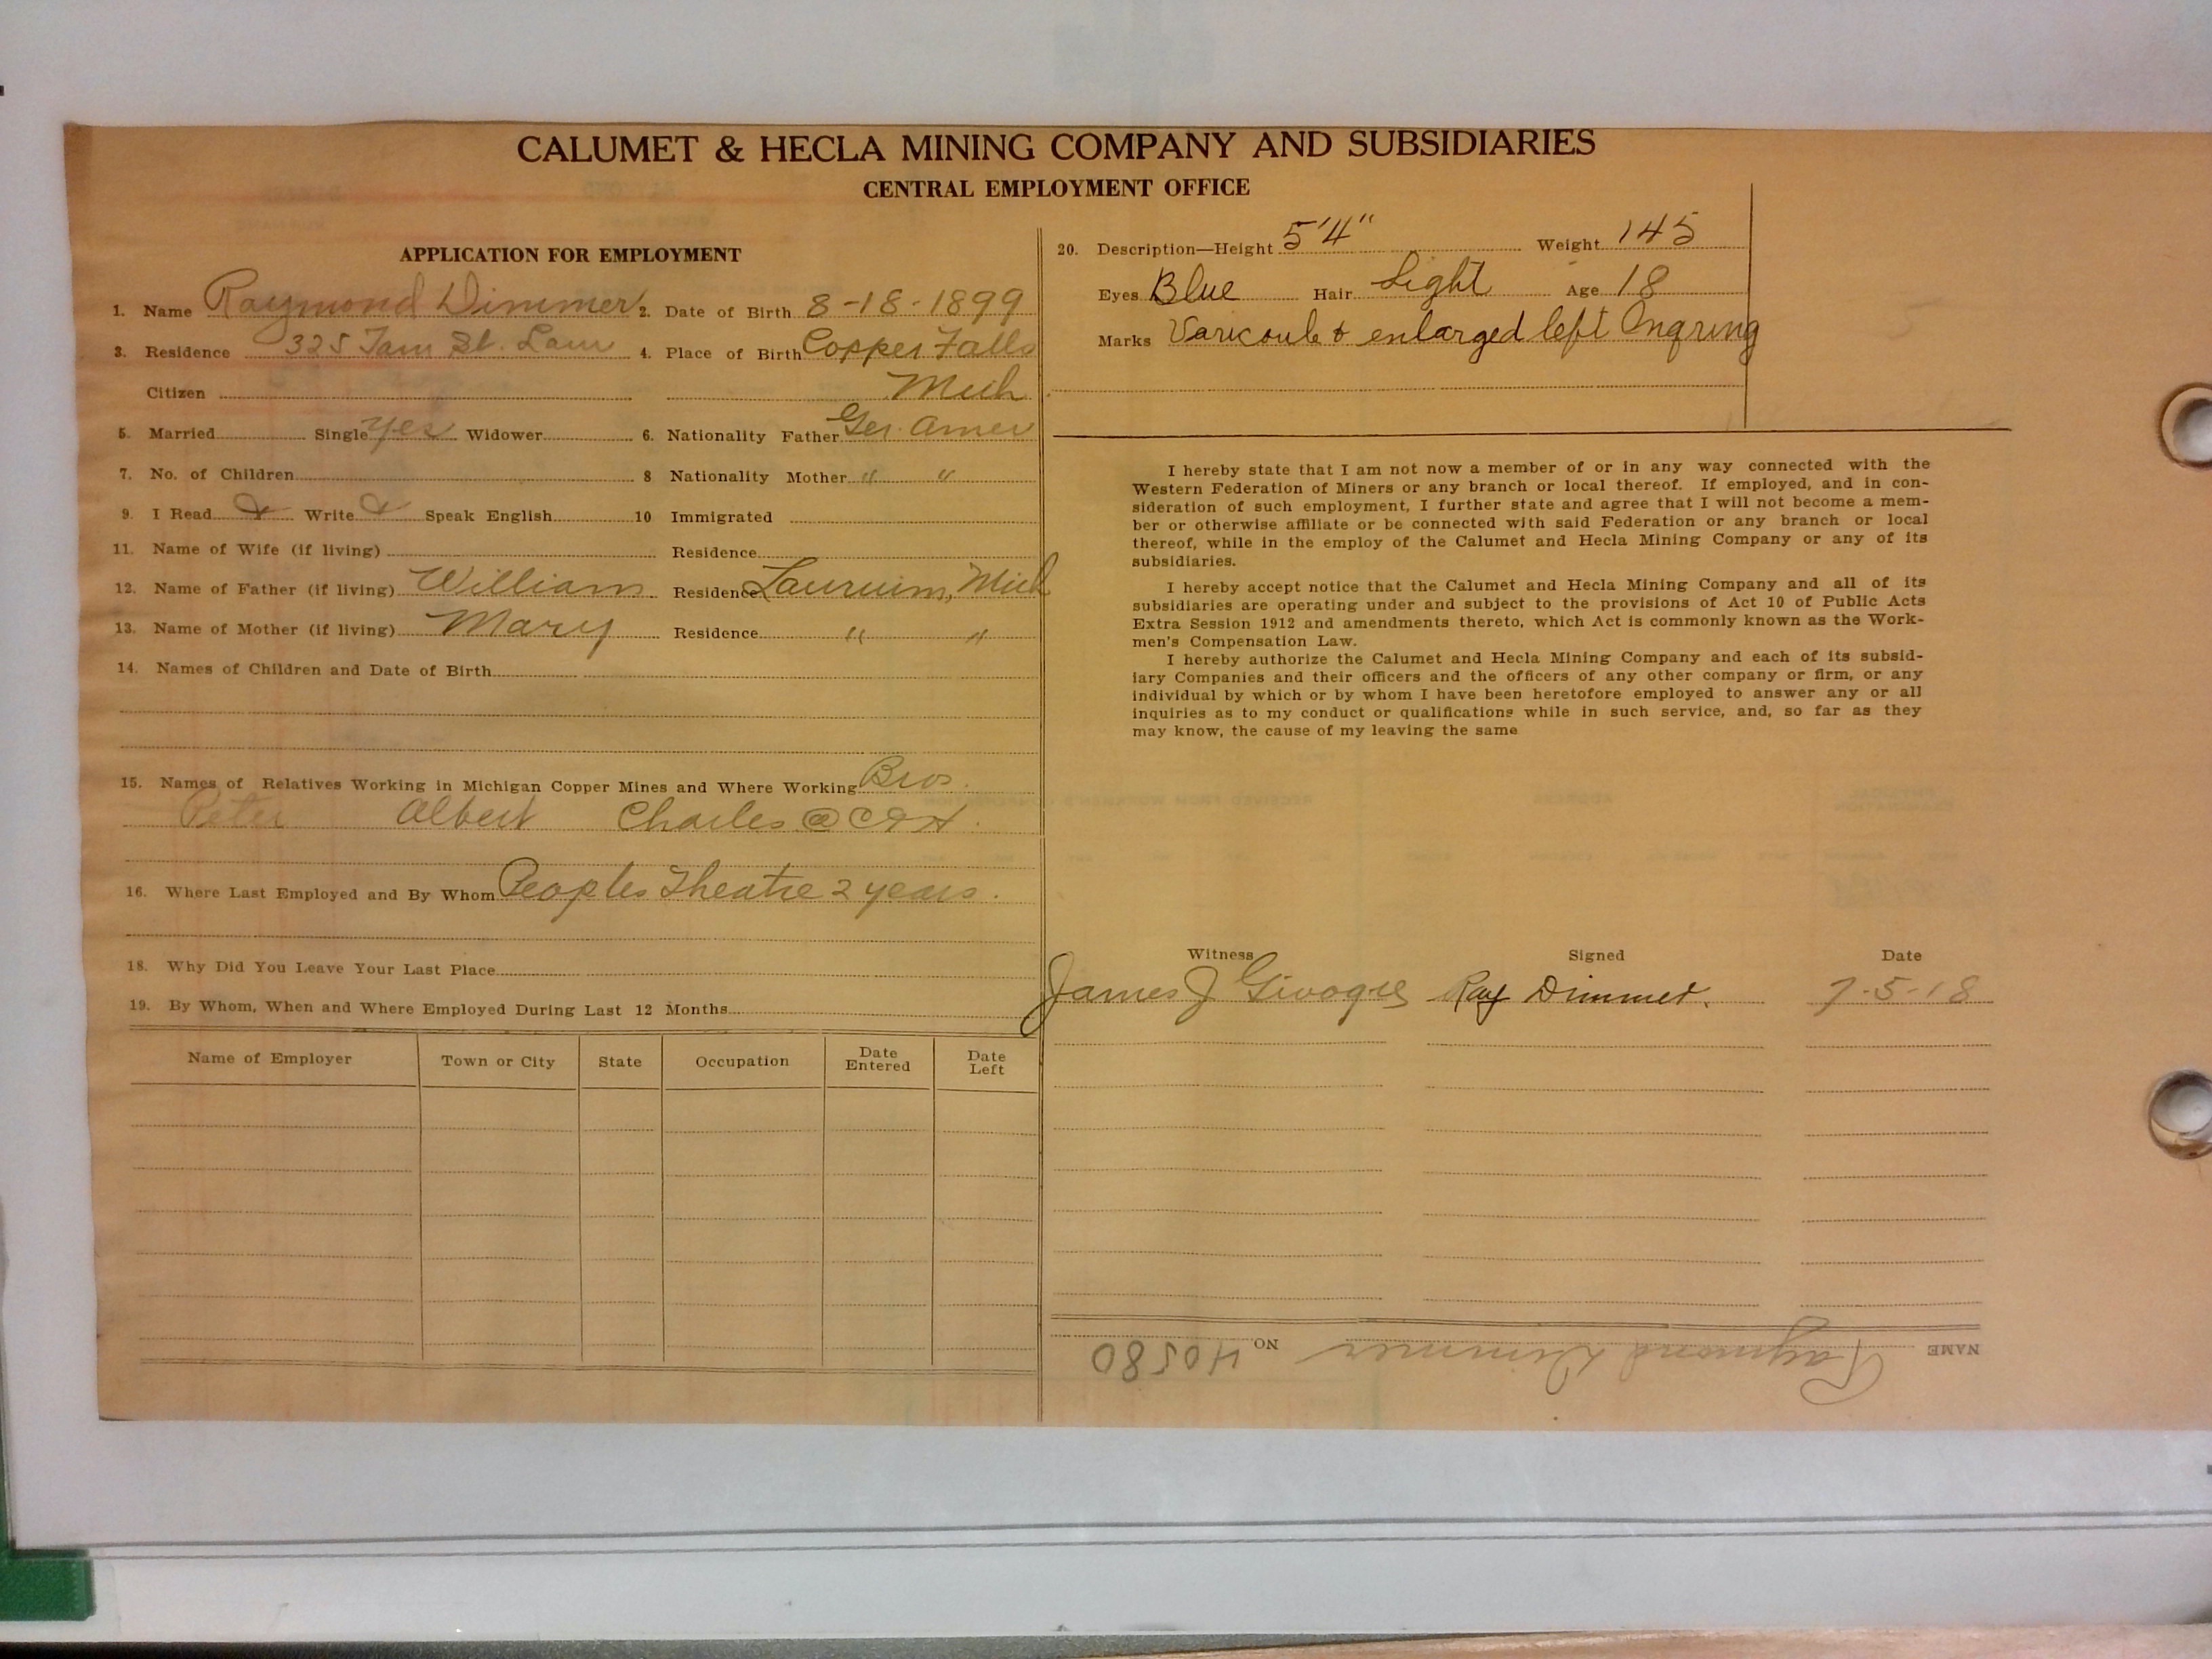 CALUMET & HECLA MINING COMPANY AND SUBSIDIARIES
CENTRAL EMPLOYMENT OFFICE
APPLICATION FOR EMPLOYMENT
1. Name Raymond Dimmer 2. Date of Birth 8-18-1899
3. Residence 325 Tam St. Laur 4. Place of Birth Copper Falls
Citizen Mich
5. Married Single yes Widower 6. Nationality Father Ger. Amer
7. No. of Children 8 Nationality Mother " "
9. I Read Write Speak English 10 Immigrated
11. Name of Wife (if living) Residence
12. Name of Father (if living) William Residence Laurium, Mich
13. Name of Mother (if living) Mary Residence " "
14. Names of Children and Date of Birth
15. Names of Relatives Working in Michigan Copper Mines and Where Working Bros.
Peter Albert Charles @ C&H.
16. Where Last Employed and By Whom Peoples Theatre 2 years.
18. Why Did You Leave Your Last Place
19. By Whom, When and Where Employed During Last 12 Months
Name of Employer Town or City State Occupation Date Entered Date Left
20. Description—Height 5'4" Weight 145
Eyes Blue Hair Light Age 18
Marks enlarged left
I hereby state that I am not now a member of or in any way connected with the
Western Federation of Miners or any branch or local thereof. If employed, and in con-
sideration of such employment, I further state and agree that I will not become a mem-
ber or otherwise affiliate or be connected with said Federation or any branch or local
thereof, while in the employ of the Calumet and Hecla Mining Company or any of its
subsidiaries.
I hereby accept notice that the Calumet and Hecla Mining Company and all of its
subsidiaries are operating under and subject to the provisions of Act 10 of Public Acts
Extra Session 1912 and amendments thereto, which Act is commonly known as the Work-
men's Compensation Law.
I hereby authorize the Calumet and Hecla Mining Company and each of its subsid-
iary Companies and their officers and the officers of any other company or firm, or any
individual by which or by whom I have been heretofore employed to answer any or all
inquiries as to my conduct or qualifications while in such service, and, so far as they
may know, the cause of my leaving the same
Witness Signed Date
James J Ray Dimmer. 7-5-18
NAME Raymond Dimmer NO 40580